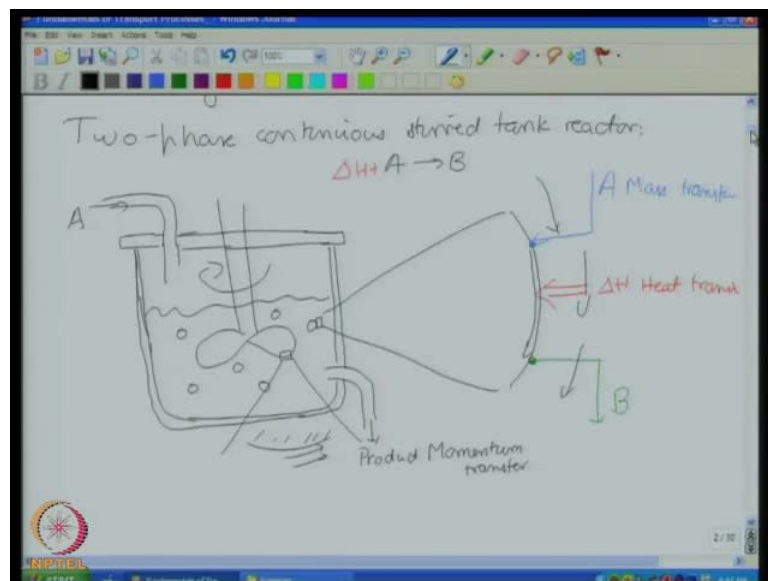 Fundamentals of Transport Processes - Windows Journal
File Edit View Insert Actions Tools Help
100%
B I
Two-phase continuous stirred tank reactor:
ΔH+ A → B
A Mass transfer
A
ΔH Heat transf
B
Product Momentum
transfer
2 / 30
NPTEL